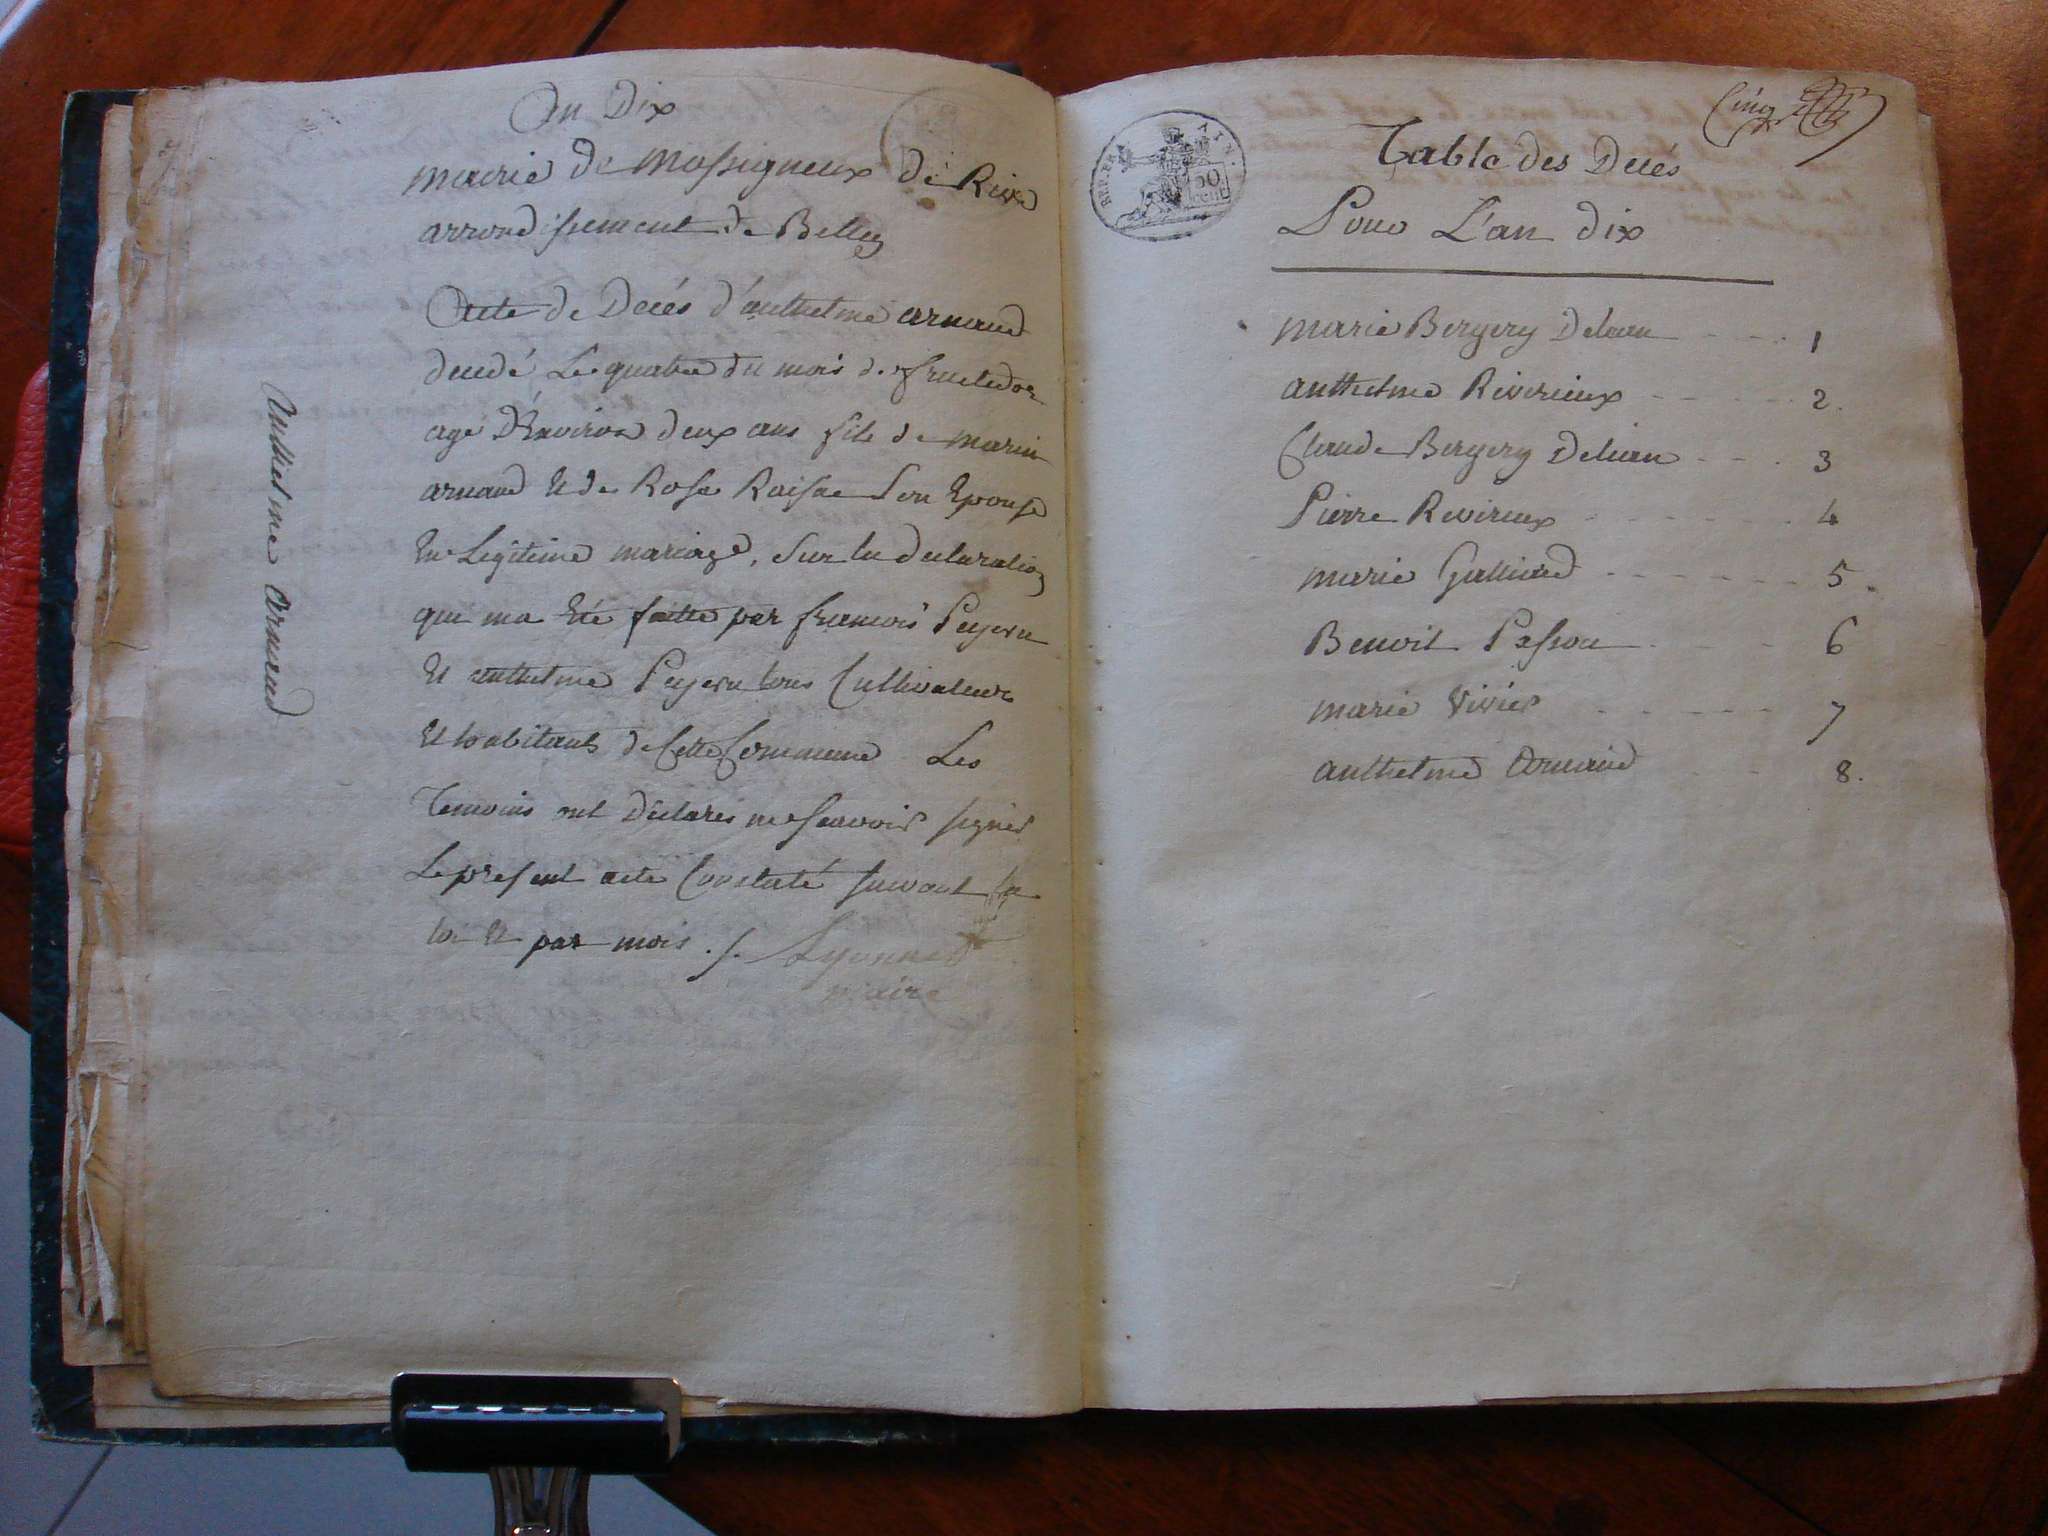 An Dix
mairie de Massigneux de Rive
arrondissement de Belley
Acte de Decés d'anthelme arnaud
decedé Le quatre du mois de fructidor
agé D'Environ deux ans fils de marin
arnaud Et de Rose Son Epouse
En Legitime mariage, Sur la declaration
que ma Eté faitte par francois Peysson
Et anthelme Peysson tous Cultivateurs
Et habitants de Cette Commune Les
Temoins ont Déclarés ne Scavoir signer
Le present acte Constaté suivant la
loi Et par mois ./. Lyonnet
maire
Anthelme Arnaud
Cinq
REP. FRA. AIN.
50 CENT.
Table des Decés
Pour L'an dix
marie Bergery Delean - - - - 1
anthelme Rivirieux - - - - - - 2.
Claude Bergery Delean - - - . 3
Pierre Rivirieux - - - - - - - 4
marie Galliard - - - - - - - 5.
Benoit - - - - 6
marie Vivier - - - - - - 7
anthelme Arnaud - - 8.